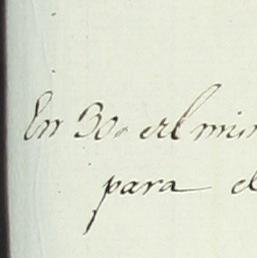 En 30. del min
para el